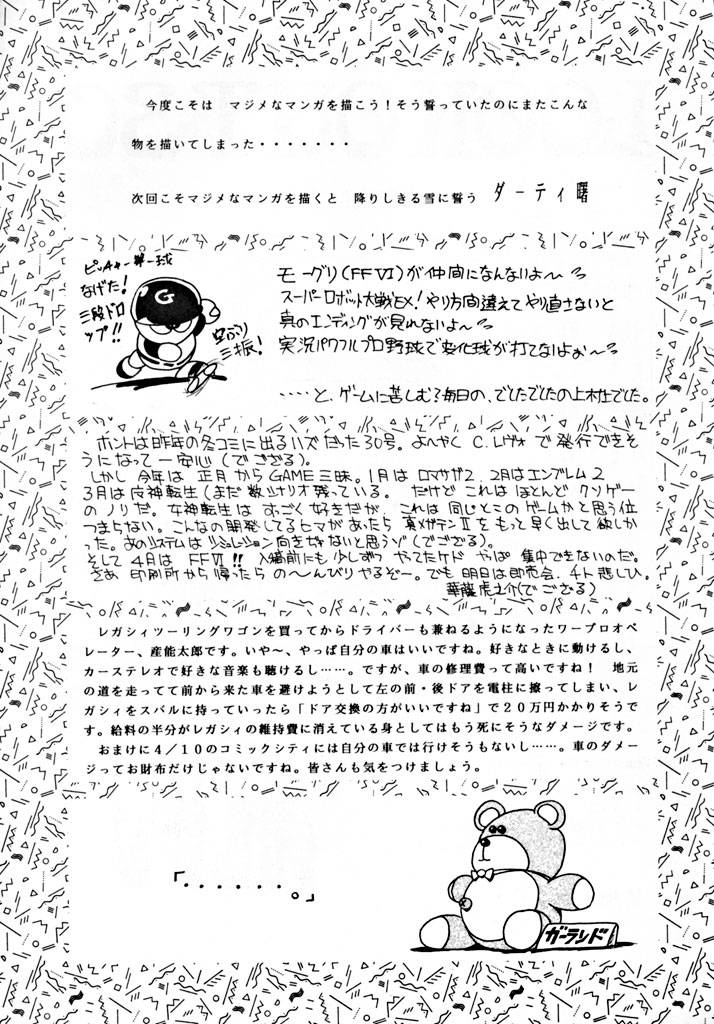 今度こそは　マジメなマンガを描こう！そう誓っていたのにまたこんな
物を描いてしまった・・・・・・・
次回こそマジメなマンガを描くと　降りしきる雪に誓う　ダーティ曙
ピッチャー第一球
なげた！
三段ドロ
ップ!!
G
空ぶり
三振！
モーグリ(FFⅥ)が仲間になんないよ〜る
スーパーロボット大戦EX！やり方間違えてやり直さないと
真のエンディングが見れないよ〜る
実況パワフルプロ野球で変化球が打てないよぉ〜る
‥‥と、ゲームに苦しむ毎日の、でしたでしたの上木性でした。
ホントは昨年の冬コミに出るハズだった30号。よーやく C.レヴォ で発行できそ
うになって一安心(でござる)。
しかし 今年は 正月からGAME三昧。1月は ロマサガ2、2月はエンブレム2
3月は女神転生(まだ数シナリオ残っている。 だけど これは ほとんど クソゲー
のノリだ。女神転生は すっごく好きだが、これは 同じとこのゲームかと思う位
つまらない。こんなの開発してるヒマがあったら 真メガテンⅡを もっと早く出して欲しか
った。あのシステムは シミュレーション向きぢゃないと思うゾ(でござる)。
そして 4月は FFⅥ!! 入稿前にも少しずつ やってたケド やっぱ 集中できないのだ。
さぁ 印刷所から帰ったら の〜んびりやるぞー。でも 明日は即売会、チト悲しひ。
華龍虎之介(でござる)
レガシィツーリングワゴンを買ってからドライバーも兼ねるようになったワープロオペ
レーター、産能太郎です。いや〜、やっぱ自分の車はいいですね。好きなときに動けるし、
カーステレオで好きな音楽も聴けるし……。ですが、車の修理費って高いですね！　地元
の道を走ってて前から来た車を避けようとして左の前・後ドアを電柱に擦ってしまい、レ
ガシィをスバルに持っていったら「ドア交換の方がいいですね」で２０万円かかりそうで
す。給料の半分がレガシィの維持費に消えている身としてはもう死にそうなダメージです。
おまけに４／１０のコミックシティには自分の車では行けそうもないし……。車のダメー
ジってお財布だけじゃないですね。皆さんも気をつけましょう。
「・・・・・・。」
ガーランド